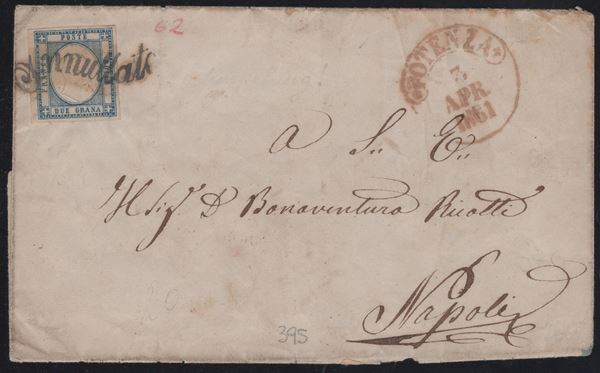 62
POSTE
FRANCO
Annullato
DUE GRANA
POTENZA
3
APR.
1861
A S. E.
Il Sig.r D Bonaventura Ricotti
Napoli
395